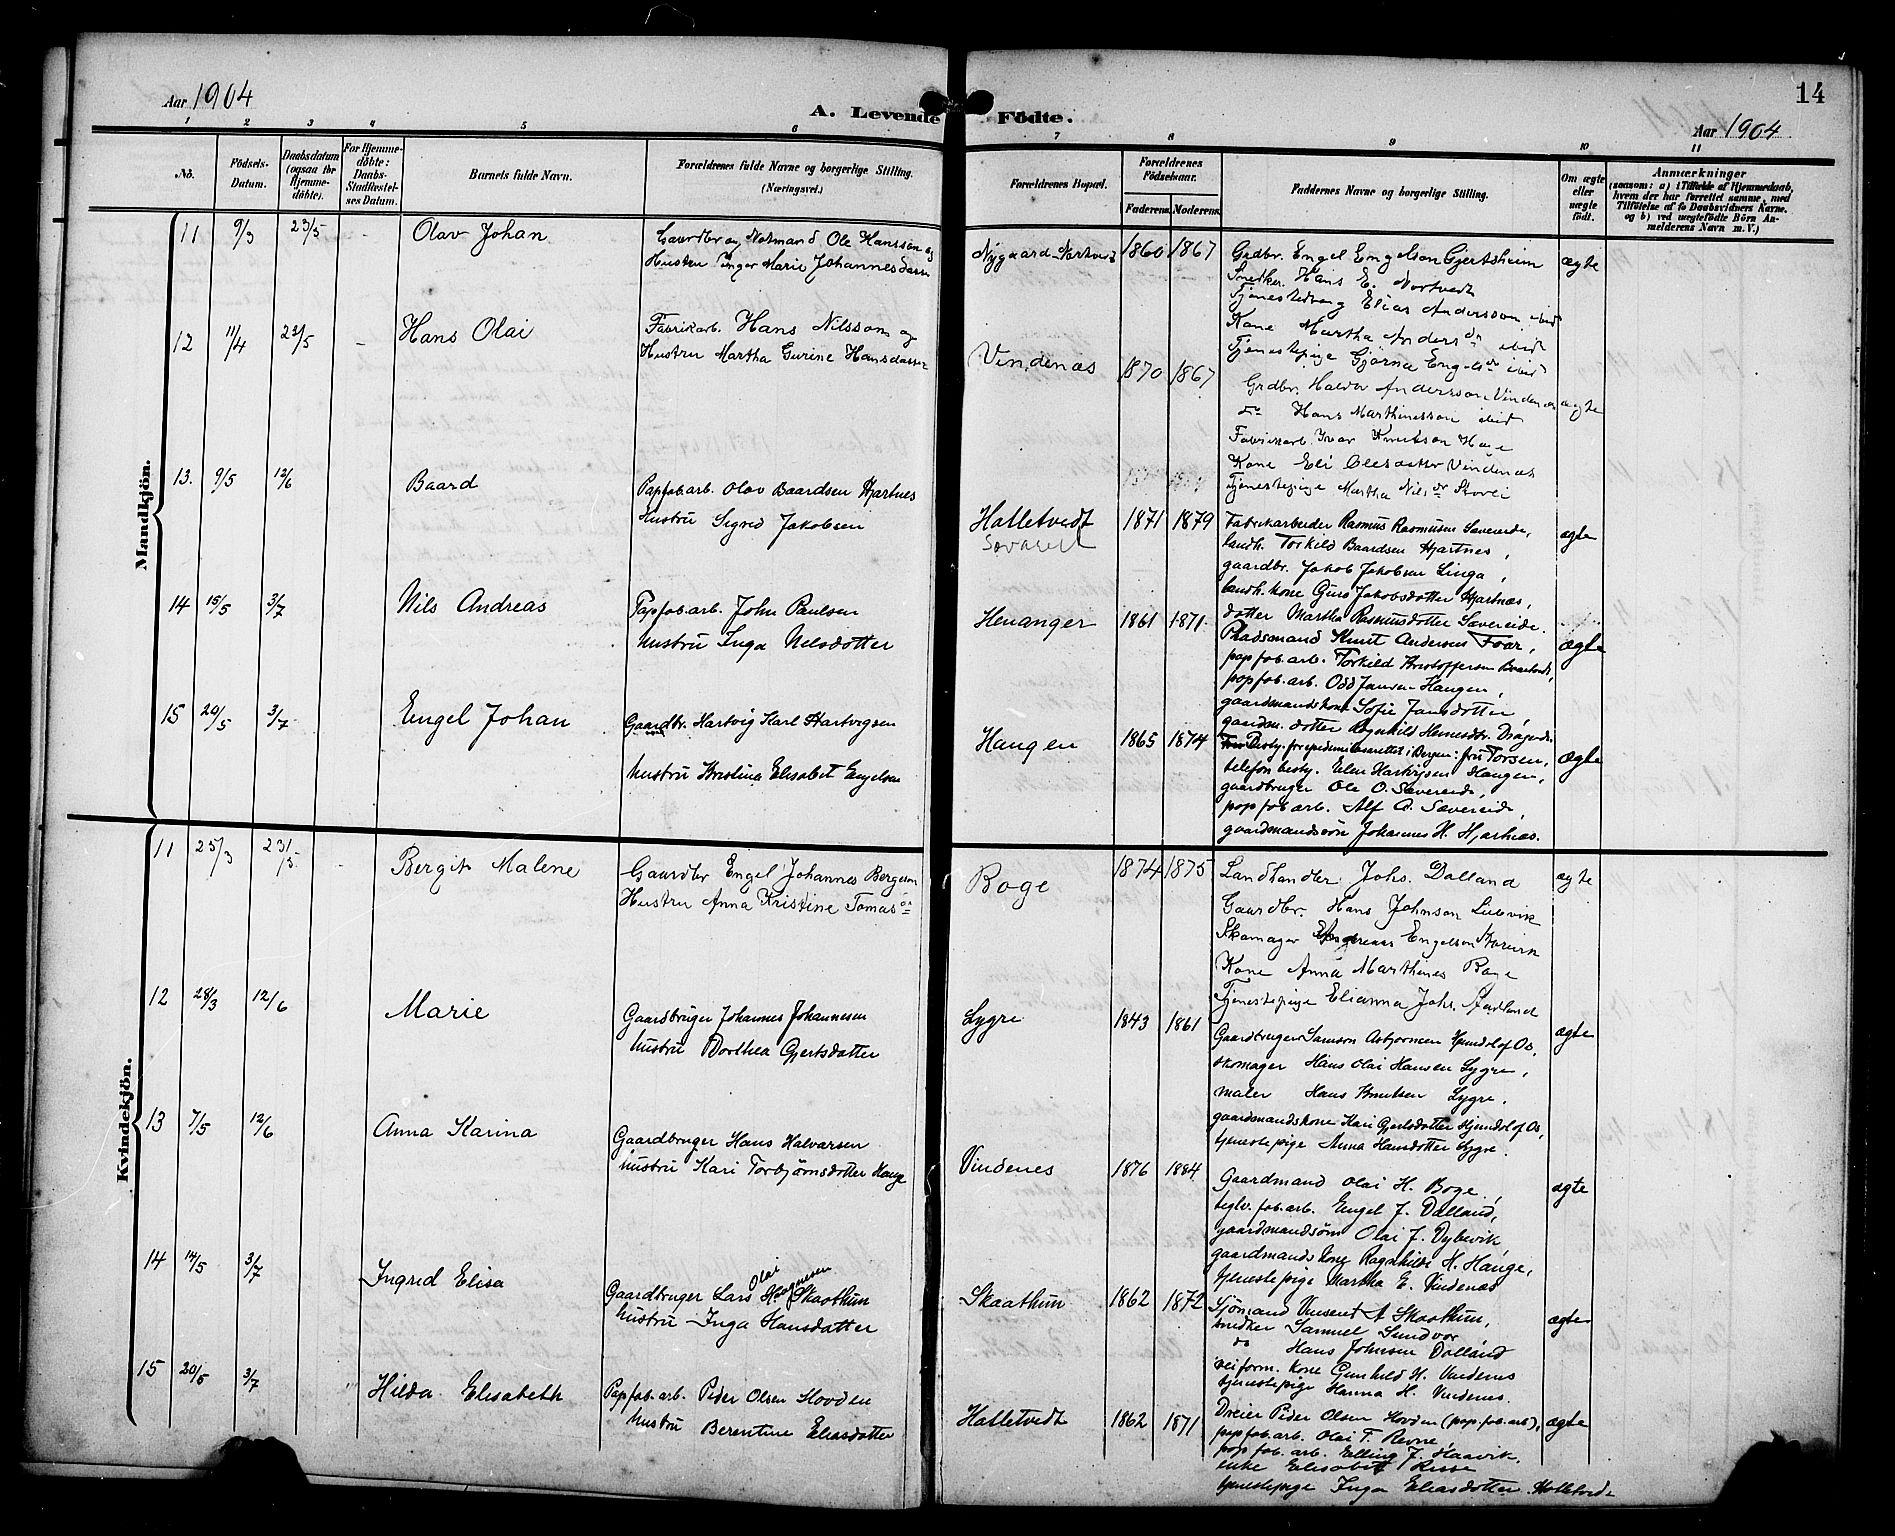 Aar 1904
A. Levende Födte.
14
Aar 1904
1 2 3 4 5 6 7 8 9 10 11
No.
Födsels-Datum.
Daabsdatum (ogsaa for Hjemme-döbte).
For Hjemme-döbte: Daabs-Stadfæstel-ses Datum.
Barnets fulde Navn.
Forældrenes fulde Navne og borgerlige Stilling. (Næringsvei.)
Forældrenes Bopæl.
Forældrenes Födselsaar.
Faderens. Moderens.
Faddernes Navne og borgerlige Stilling.
Om ægte eller uægte födt.
Anmærkninger
(saasom: a) i Tilfælde af Hjemmedaab,
hvem der har forrettet samme, med
Tilföielse af to Daabsvidners Navne,
og b) ved uægtefödte Börn An-
melderens Navn m. V.)
Mandkjön.
11 9/3 23/5 Olav Johan
Gaardbr og Notmand Ole Hansson og
Hustru Inger Marie Johannesdatter
Nygaard Nortvedt 1860 1867
Grdbr. Engel Engelson Gjertsheim
Snedker Hans E. Nortvedt
Elias Andersson ibid
Kone Martha Andersdr ibid
Tjenestepige Gjørna Engelsdr ibid
ægte
12 11/4 23/5 Hans Olai
Fabrikarb. Hans Nilsson og
Hustru Martha Gurine Hansdatter
Vindenæs 1870 1867
Grdbr. Haldor Andersson Vindenæs
do Hans Marthinesson ibid
Fabrikarb. Ivar Knutson Hage
Kone Eli Olesdatter Vindenæs
Tjenestepige Martha Nilsdr Skovei
ægte
13. 9/5 12/6 Baard
Papfab.arb. Olav Baardsen Hjartnes
Hustru Sigrid Jakobsen
Halletvedt
Sævareid
1871 1879
Fabrikarbeider Rasmus Rasmusen Sævereide,
landh. Torkild Baardsen Hjartnes,
gaardbr. Jakob Jakobsen Linga,
landh. kone Guro Jakobsdotter Hjartnæs,
dotter Martha Rasmusdotter Sævereide.
ægte
14 15/5 3/7 Nils Andreas
Papfab.arb. John Paulsen
hustru Inga Nilsdotter
Henanger 1861 1871
Pladsmand Knut Andersen Foor,
papfab.arb. Torkild Kristoffersen
papfab.arb. Odd Jansen Haugen,
gaardmandskone Sofie Jansdotter,
gaardm. dotter Ragnhild
ægte
15 29/5 3/7 Engel Johan
Gaardbr. Hartvig Karl Hartvigsen
hustru Kristina Elisabet Engelsen
Haugen 1865 1874
Besty. for epidemilasarettet i Bergen: fru Torsen,
telefonbesty. Elen Hartvigsen Haugen,
gaardbruger Ole O. Sævereide,
papfabarb. Alf A. Sævereide,
gaardmandssön Johannes H. Hjartnæs.
ægte
Kvindekjön.
11 25/3 23/5 Bergit Malene
Gaardbr Engel Johannes Bergeson
Hustru Anna Kristine Tomasdr
Boge 1874 1875
Landhandler Johs. Dalland
Gaardbr. Hans Johnson Lunvik
Skomager Andreas Engelson
Kone Anna Marthines Boge
Tjenestepige Elianna Johs.
ægte
12 28/3 12/6 Marie
Gaardbruger Johannes Johannesen
hustru Dorthea Gjertsdatter
Lygre 1843 1861
Gaardbruger Samson Asbjørnsen Gjundalof Os,
skomager Hans Olai Hansen Lygre,
maler Hans Knutsen Lygre.
gaardmandskone Kari Gjertsdotter Gjundalof Os,
tjenestepige Anna Hansdotter Lygre.
ægte
13 7/5 12/6 Anna Karina
Gaardbruger Hans Halvorsen
hustru Kari Torbjørnsdotter Hauge
Vindenes 1876 1884
Gaardmand Olai H. Boge,
teglv. fab.arb. Engel J. Dalland,
gaardmandsøn Olai J. Dybevik
gaardmandskone Ragnhilde H. Hauge,
tjenestepige Martha E. Vindenas
ægte
14 14/5 3/7 Ingrid Elisa
Gaardbruger Lars Olai Haagensen Skaathun
hustru Inga Hansdatter
Skaathun 1862 1872
Sjömand Vinsent A Skaathun,
snedker Samuel Sundvor,
do Hans Johnsen Dalland
veiform. kone Gunhild H. Vindenes
tjenestepige Hanna H. Vindenes.
ægte
15 20/5 3/7 Hilda Elisabeth
Papfab.arb. Peder Olsen Hovden
hustru Berentine Eliasdotter
Halletvedt 1862 1871
Dreier Peder Olsen Hovden (pap.fab.arb),
papfab.arb. Olai T. Revne,
papfab.arb. Elling J. Haavik,
enke Elisabet Risse
tjenestepige Inga Eliasdotter Halletvedt
ægte